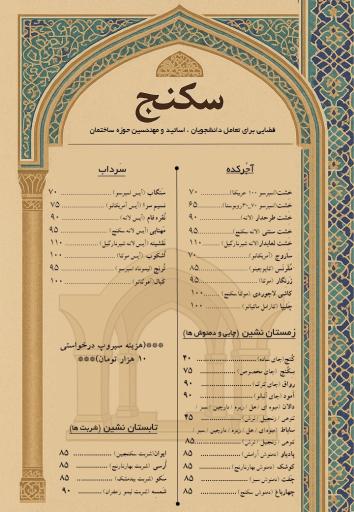 سکنج
فضایی برای تعامل دانشجویان ، اساتید و مهندسین حوزه ساختمان
آجرکده
خشت(اسپرسو ۱۰۰ عربیکا) ۷۰
خشت(اسپرسو ۷۰،۳۰ روبوستا) ۶۵
خشت طرحدار (لاته) ۹۰
خشت سنتی (لاته سکنج) ۹۵
خشت لعابدار(لاته شیرنارگیل) ۱۱۰
ساروج (آمریکانو) ۷۰
مقرنس (کاپوچینو) ۸۵
زرنگار (موکا) ۹۵
کاشی لاجوردی (موکا سکنج) ۱۰۰
چلیپا (کارامل ماکیاتو) ۱۰۰
زمستان نشین (چایی و دمنوش ها)
کنج(چای ساده) ۴۰
سکنج (چای مخصوص) ۷۵
رواق (چای ترک) ۹۰
آمود (چای آتالو) ۹۰
دالان (میوه ای / هل / زیره / دارچین / سیر /
ترهی / زنجبیل / ترش) ۴۵
ساباط (میوه ای / هل / زیره / دارچین / سیر /
ترهی / زنجبیل / ترش) ۸۵
بادیاو (دمنوش آرامش) ۸۵
کوشک (دمنوش بهارنارنج) ۸۵
جفت (دمنوش سبز) ۸۵
چهارباغ (دمنوش سکنج) ۹۰
سرداب
سنگاب (آیس اسپرسو) ۷۰
نسیم سرا (آیس آمریکانو) ۷۵
نقره فام (آیس لاته) ۹۰
مهتابی (آیس لاته سکنج) ۹۵
نقشینه (آیس لاته شیرنارگیل) ۱۱۰
آشکوب (آیس موکا) ۱۰۰
ترنج (لیموناد اسپرسو) ۹۵
کپال (آفوگاتو) ۱۰۰
***(هزینه سیروپ درخواستی
۱۰ هزار تومان)***
تابستان نشین (شربت ها)
ایوان(شربت سکنجبین) ۸۵
اُرسی (شربت بهارنارنج) ۸۵
سکو (شربت بیدمشک) ۸۵
شمسه (شربت لیمو زعفران) ۹۰